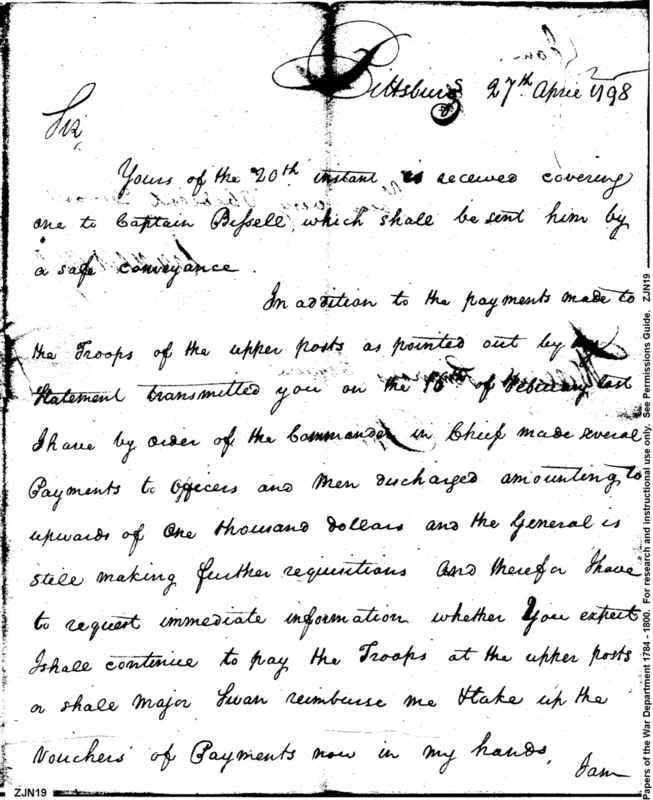 Pittsburg 27th April 1798
Sir,
Yours of the 20th instant is received covering
one to Captain Bissell, which shall be sent him by
a safe conveyance.
In addition to the payments made to
the Troops of the upper posts as pointed out by
Statement transmitted you on the 15th of February last
I have by order of the Commander in Chief made several
Payments to officers and Men discharged amounting to
upwards of One thousand dollars and the General is
stile making further requisitions And therefor I have
to request immediate information whether You expect
I shall continue to pay the Troops at the upper posts
or shall Major Swan reimburse me & take up the
Vouchers of Payments now in my hands,
I am
ZJN19
Papers of the War Department 1784 - 1800. For research and instructional use only. See Permissions Guide. ZJN19